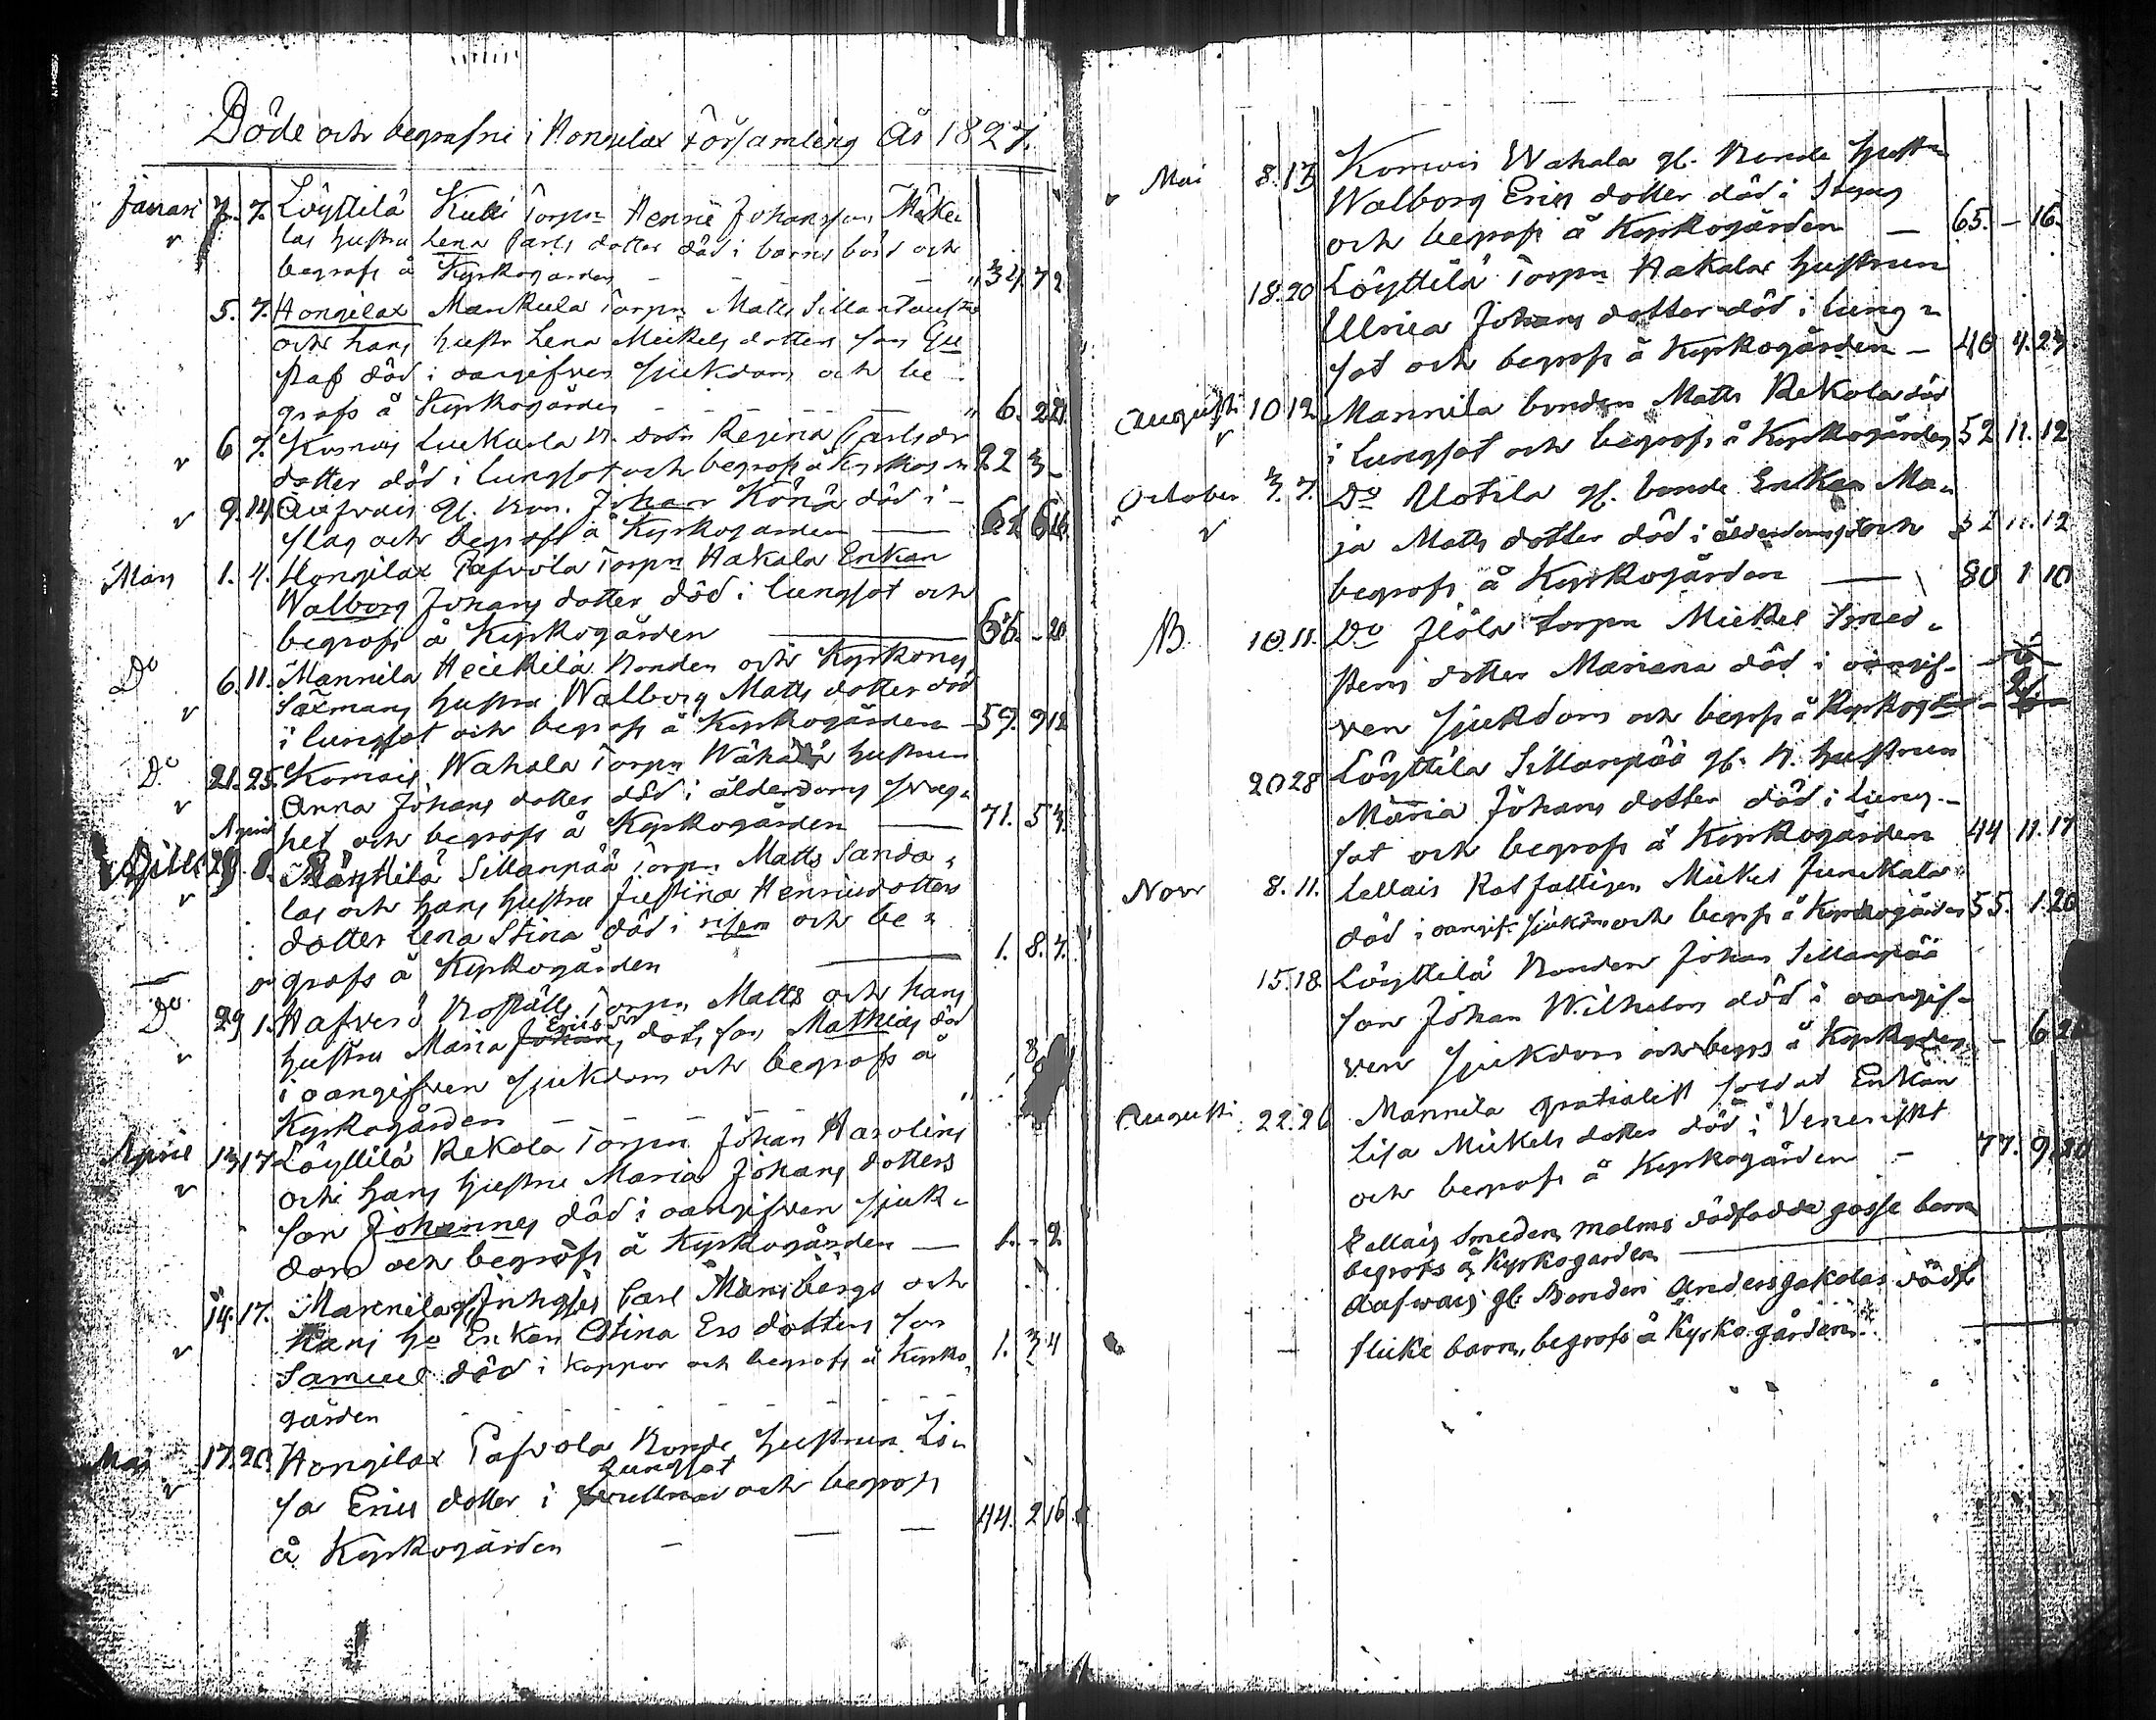 Döde och begrafne i Hongilax Församling År 1827.
Januari 7. 7. Löyttilä Kulli Torpn Henric Johansson Mäke
las hustru Lena Carls dotter död i barnsbörd och
begrofs å Kyrkogården - - " 34. 7 2
5. 7. Hongilax Markula Torpn Matts Sillantausta
och hans hustr Lena Mickels dotters son Gu
staf död i oangifven sjukdom och be
grofs å Kyrkogården - - - - " 6. 22
6 7. Komois Luckurla dotr Regina Carlsdr
dotter död i lungsot och begrofs å Kyrkog 22 3 -
9. 14. Aufvais gl. Bon. Johan Könä död i
slag och begrofs å Kyrkogården — 62 6 16
Mars 1. 4. Hongilax Pafvola Torpn Hakala Enkan
Walborg Johans dotter död i lungsot och
begrofs å Kyrkogården — 66. - 20
Do 6. 11. Mannila Heickilä Bonden och Kyrkones
Säxmans hustru Walborg Matts dotter död
i lungsot och begrofs å Kyrkogården - 59. 9 12
Do 21. 25. Komois Wahala Torpn hustrun
Anna Johans dotter död i ålderdoms svag-
het och begrofs å Kyrkogården — 71. 5 3.
April
29. 8. Löyttilä Sillanpää Torpn Matts Sanda-
las och hans hustru Justina Henricsdotters
dotter Lena Stina död i risen och be-
grofs å Kyrkogården — 1. 8. 7.
Do 29 1. Hafverö Boställs Torpn Matts och hans
hustru Maria Erics dr dots son Mathias död
i oangifven sjukdom och begrofs å 8
Kyrkogården - - - -
April 13 17 Löyttilä Rekola Torpn Johan Harolins
och hans hustru Maria Johans dotters
son Johannes död i oangifven sjuk-
dom och begrofs å Kyrkogården — 1. - 2
14. 17. Mannila Inhyses Carl Mansbergs och
hans Ho Enkan Stina Ers dotters son
Samuel död i koppor och begrofs å Kyrko 1. 3 4
gården - - - - - - - -
Mai 17. 20. Hongilax Pafvola Bonde hustrun Li-
lungsot
sa Erics dotter i och begrofs
å Kyrkogården - — — 44. 2 16.
Mai 8. 13 Komois Wahala gl. Bonde hustru
Walborg Erics dotter död i Styng
och begrofs å Kyrkogården — 65. - 16.
18. 20 Löyttilä Torpn Hakalas hustrun
Ulrica Johans dotter död i lung-
sot och begrofs å Kyrkogården - 40 4. 23
Augusti 10 12 Mannila bonden Matts Rekola död
i lungsot och begrofs å Kyrkogården 52 11. 12
October 3. 7. Do Uotila gl. bonde Enkan Ma-
ja Matts dotter död i ålderdoms och 32 11. 12
begrofs å Kyrkogården — 80 1 10
B. 10. 11. Do Jlöla torpn Mickel Smed-
stens dotter Mariana död i oangif-
ven sjukdom och begrofs å Kyrkog - 21.
20 28 Löyttilä Sillanpää gl. B. hustrun
Maria Johans dotter död i lung-
sot och begrofs å Kyrkogården 44 11. 17
Novr 8. 11. Lellais Rotfattigen Mickel Junikala
död i oangif. sjukdm och begrofs å Kyrkogården 55. 1. 20
15. 18. Löyttilä Bonden Johan Sillanpää
son Johan Wilhelm död i oangif-
ven sjukdom och begrs å Kyrkogden - 6 2
Augusti 22. 26 Mannila gratialist soldat Enkan
Lisa Mickels dotter död i Veneriskt
och begrofs å Kyrkogården - 77. 9. 20
Lellais Smeden Malms dödfödde gosse barn
begrofs å Kyrkogården —
Aafwais gl. Bonden Anders Jakolas dödf
flicke barn, begrofs å Kyrkogården